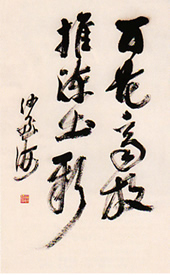 百花齐放
推陈出新
沙孟海